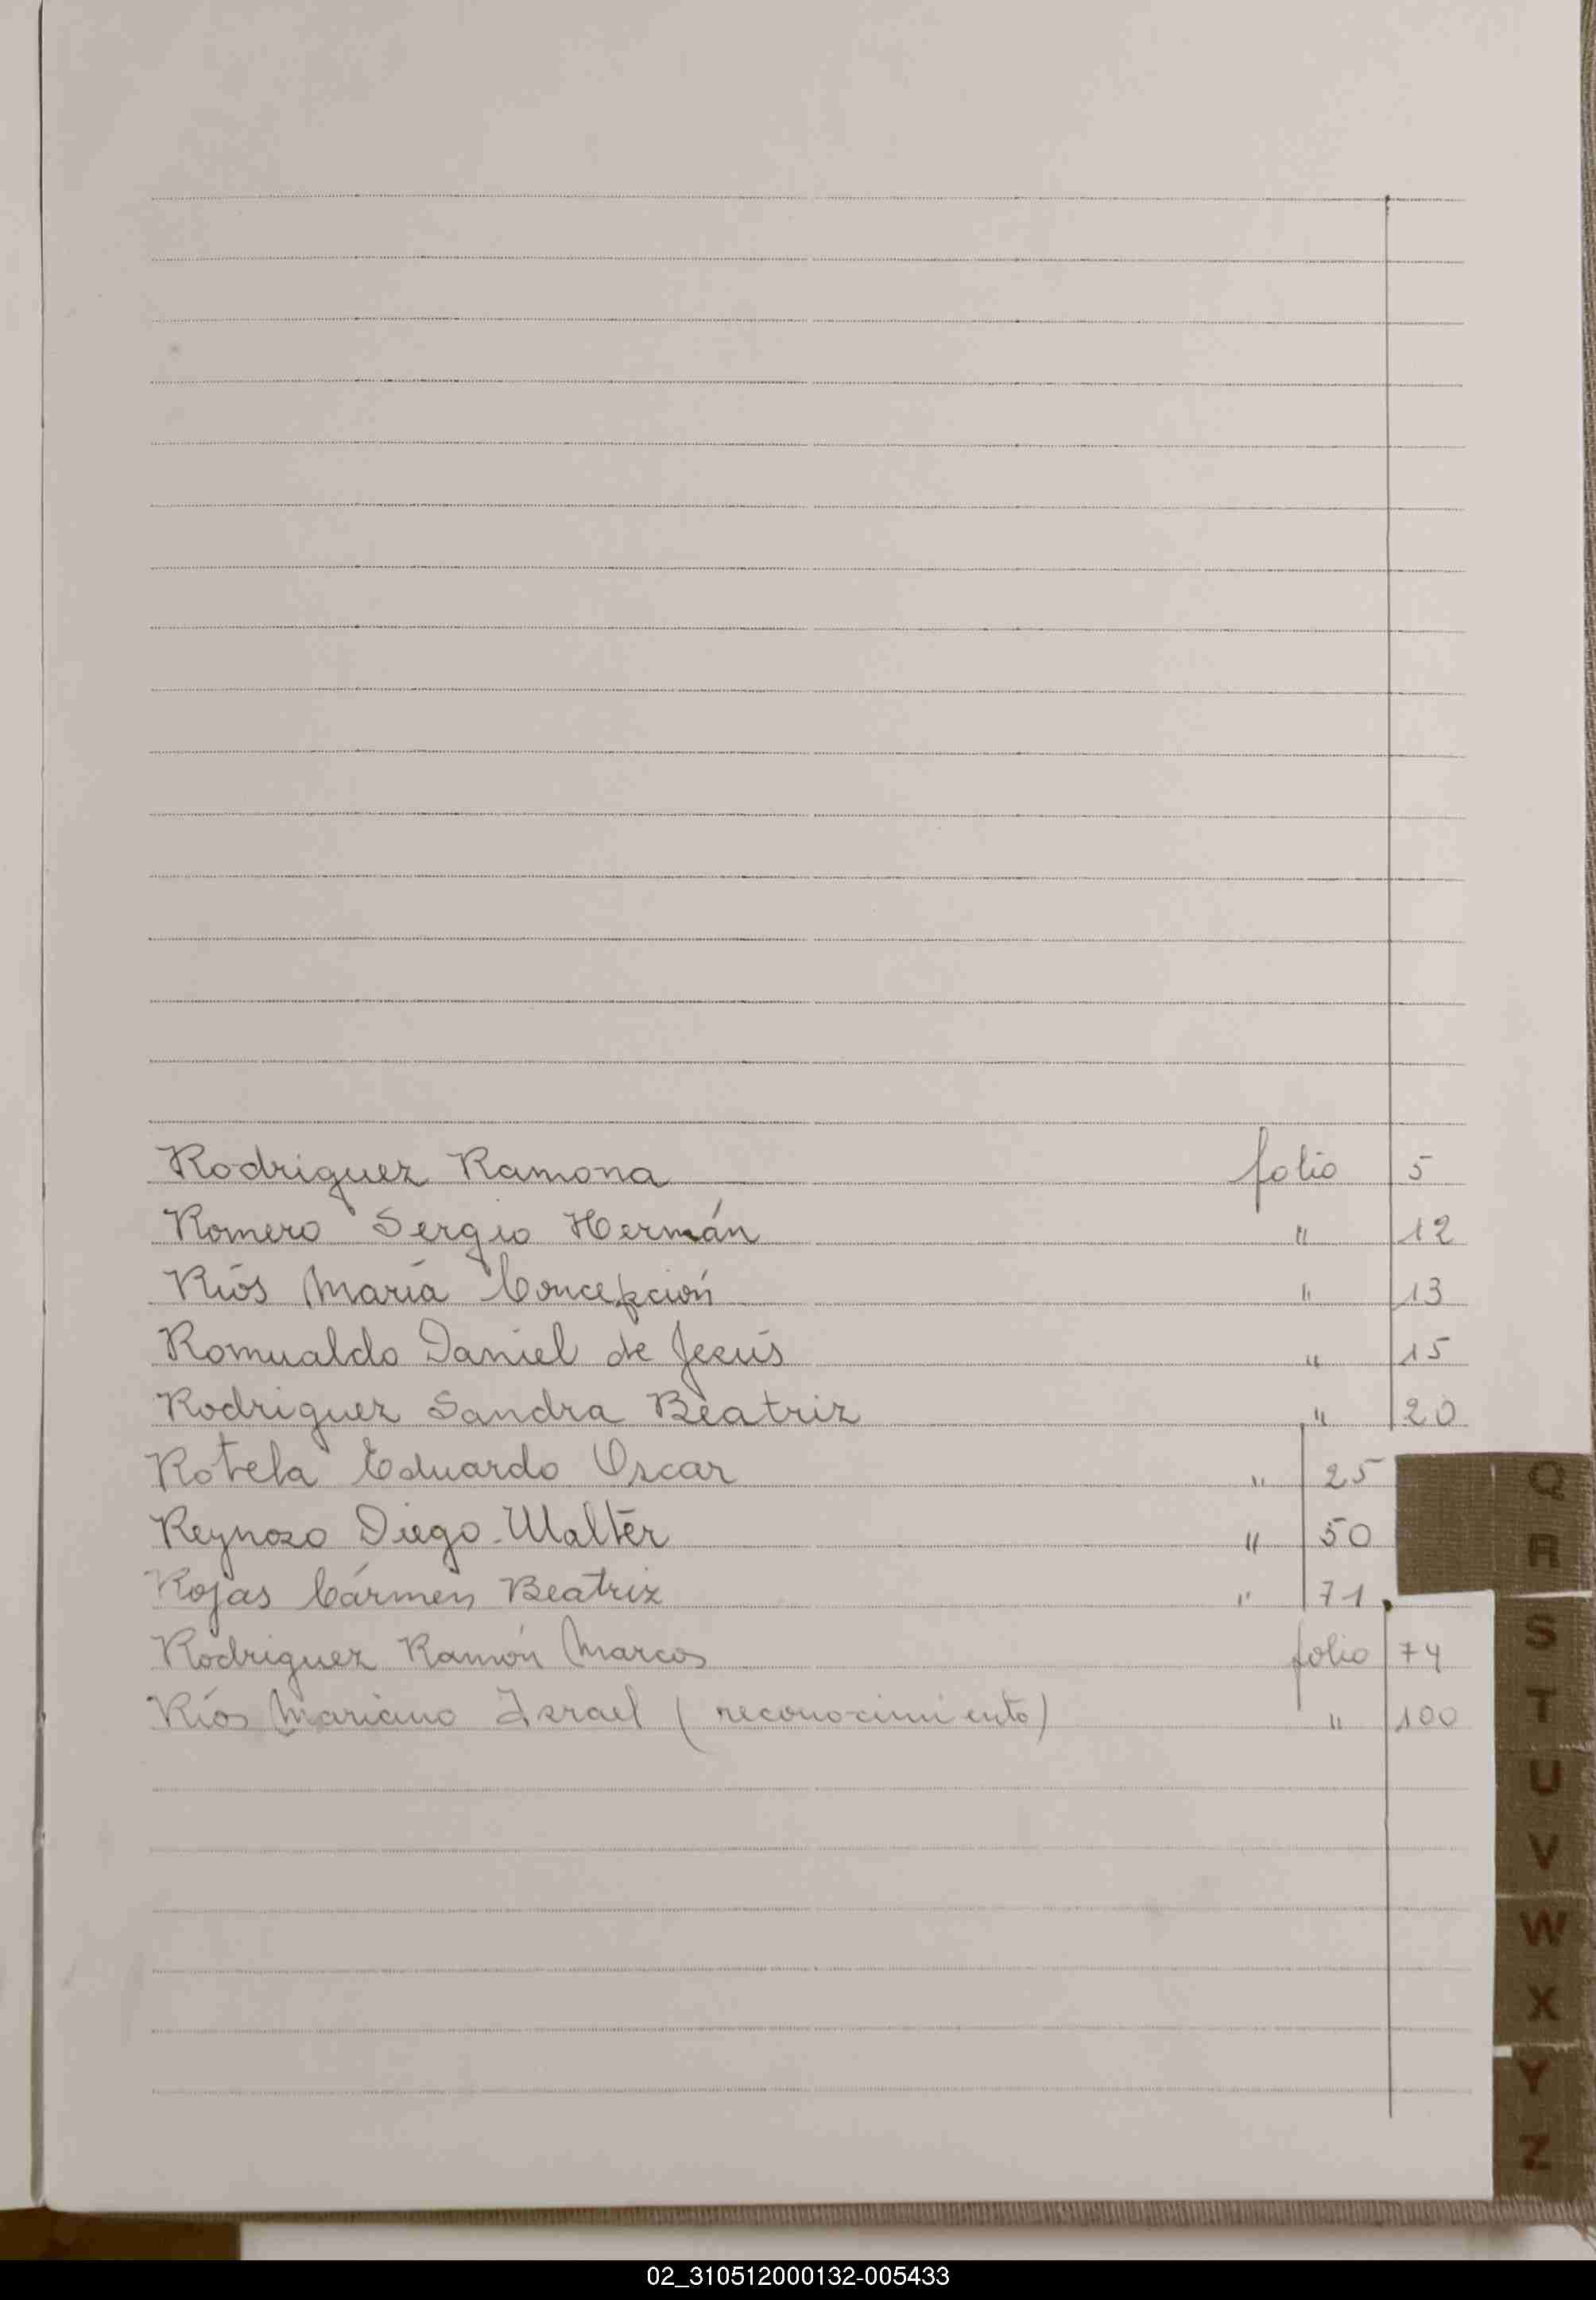 Rodriguez Ramona folio 5
Romero Sergio Hermán " 12
Ríos María Concepción " 13
Romualdo Daniel de Jesús " 15
Rodriguez Sandra Beatriz " 20
Rotela Eduardo Oscar " 25
Reynoso Diego Walter " 50
Rojas Cármen Beatriz " 71
Rodriguez Ramón Marcos folio 74
Ríos Mariano Israel (reconocimiento) " 100
Q
R
S
T
U
V
W
X
Y
Z
02_310512000132-005433